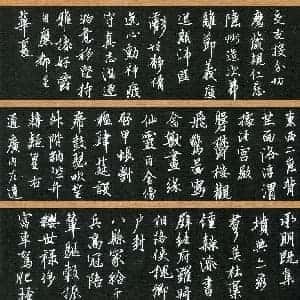 交友投分切
磨箴規仁慈
隱惻造次弗
離節義廉
退顛沛匪
虧性靜情
逸心動神疲
守真志滿逐
物意移堅持
雅操好爵
自縻都邑
華夏
東西二京背
芒面洛浮渭
據涇宮殿
盤鬱樓觀
飛驚圖寫
禽獸畫綵
仙靈丙舍傍
啟甲帳對
楹肆筵設
席鼓瑟吹笙
升階納陛弁
轉疑星右
通廣內左達
承明既集
墳典亦聚
群英杜稿
鍾隸漆書
壁經府羅將
相路俠槐卿
戶封
八縣家給千
兵高冠陪
輦驅轂振
纓世祿侈
富車駕肥輕